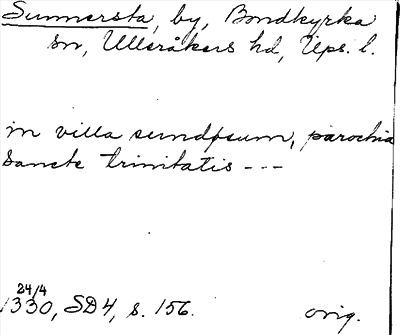 Sunnersta, by, Bondkyrka
sn, Ulleråkers hd, Ups. l.
in villa sundpsum, parochia
Sancte trinitatis ---
24/4
1330, SD4, s. 156. orig.